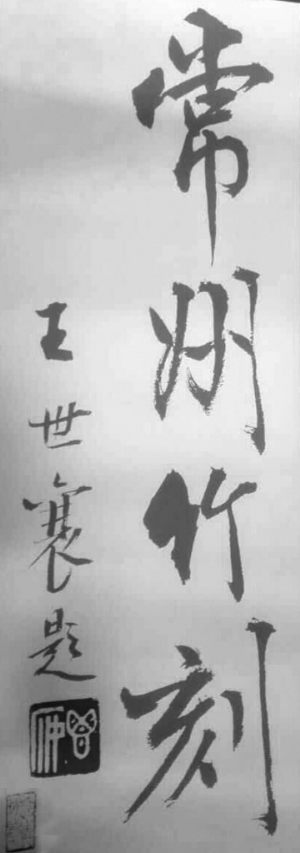 常州竹刻
王世襄题